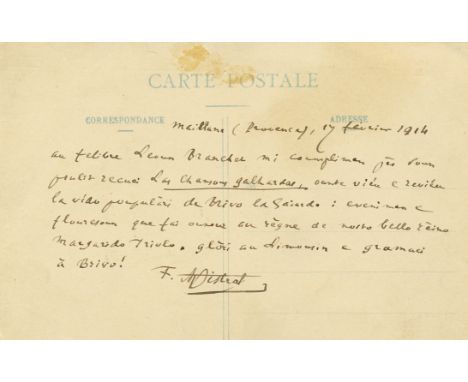 CARTE POSTALE
CORRESPONDANCE
ADRESSE
Maillane (Provence), 17 février 1914
au felibre Leoun Branchet mi coumplimen pèr soun
poulit recuei Las Chansons galhardas, ounte viéu e
la vido poupulàri de Brivo la Gaiardo : e
flouresoun que fai ounour au règne de nosto bello rèino
Margarido Priolo. glòri au Limousin e gramaci
à Brivo!
F. Mistral